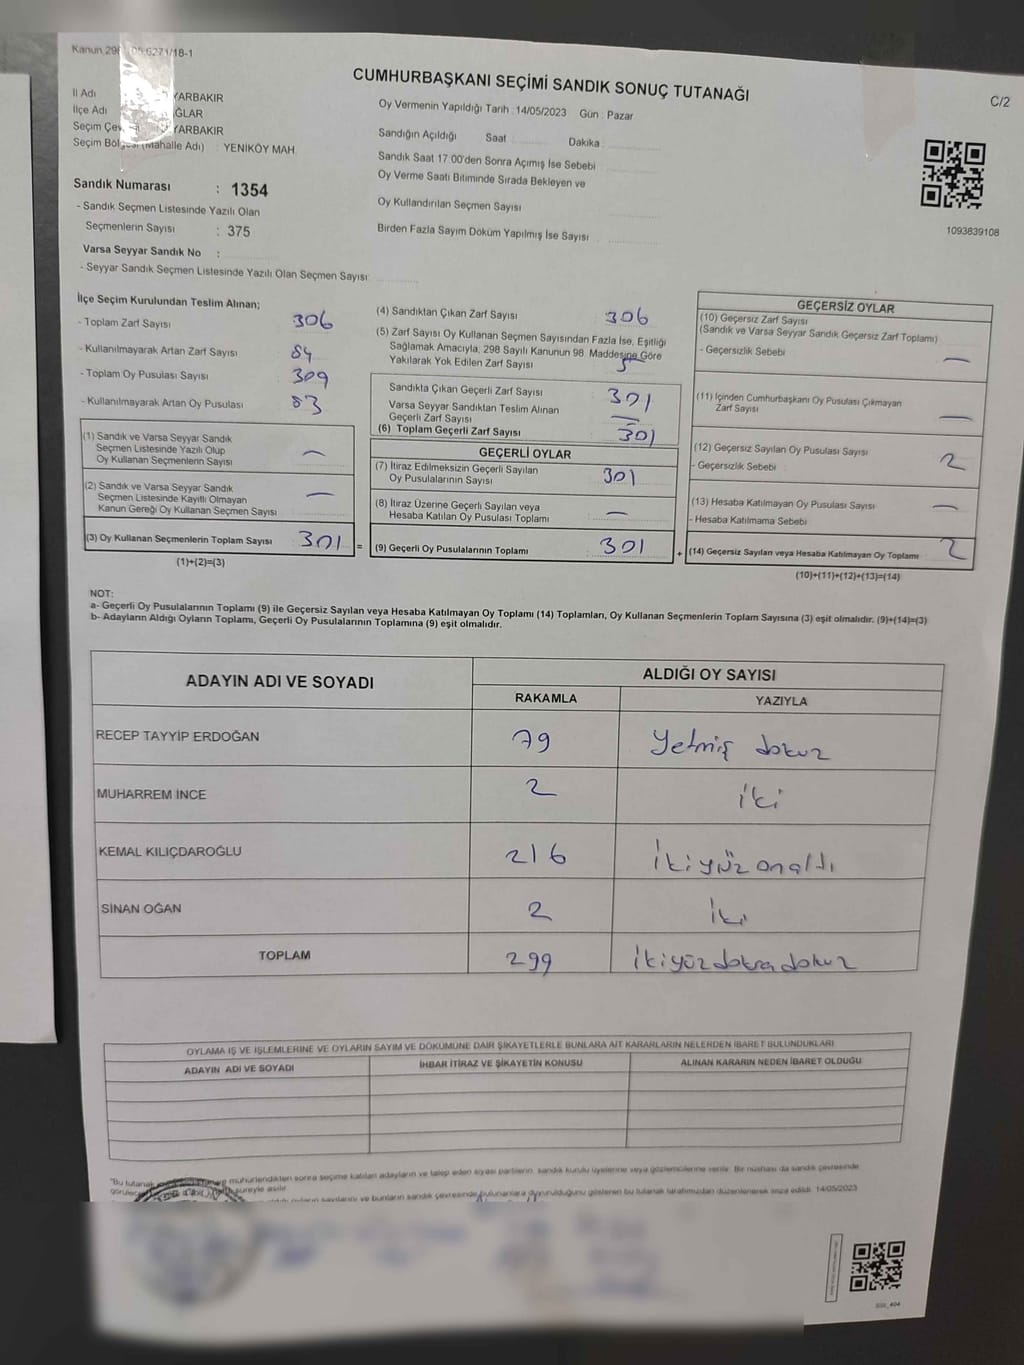 Kanun 298
6271/18-1
CUMHURBAŞKANI SEÇİMİ SANDIK SONUÇ TUTANAĞI
C/2
İl Adı YARBAKIR
İlçe Adı ĞLAR
Seçim Çev YARBAKIR
Seçim Bölgesi (Mahalle Adı) : YENİKÖY MAH.
Oy Vermenin Yapıldığı Tarih : 14/05/2023 Gün : Pazar
Sandığın Açıldığı Saat Dakika :
Sandık Saat 17:00'den Sonra Açımış İse Sebebi
Oy Verme Saati Bitiminde Sırada Bekleyen ve
Oy Kullandırılan Seçmen Sayısı
Birden Fazla Sayım Döküm Yapılmış İse Sayısı :
1093839108
Sandık Numarası : 1354
- Sandık Seçmen Listesinde Yazılı Olan
Seçmenlerin Sayısı : 375
Varsa Seyyar Sandık No :
- Seyyar Sandık Seçmen Listesinde Yazılı Olan Seçmen Sayısı:
İlçe Seçim Kurulundan Teslim Alınan;
- Toplam Zarf Sayısı : 306
- Kullanılmayarak Artan Zarf Sayısı : 84
- Toplam Oy Pusulası Sayısı : 309
- Kullanılmayarak Artan Oy Pusulası : 83
(1) Sandık ve Varsa Seyyar Sandık
Seçmen Listesinde Yazılı Olup
Oy Kullanan Seçmenlerin Sayısı : —
(2) Sandık ve Varsa Seyyar Sandık
Seçmen Listesinde Kayıtlı Olmayan
Kanun Gereği Oy Kullanan Seçmen Sayısı : —
(3) Oy Kullanan Seçmenlerin Toplam Sayısı : 301 =
(1)+(2)=(3)
(4) Sandıktan Çıkan Zarf Sayısı : 306
(5) Zarf Sayısı Oy Kullanan Seçmen Sayısından Fazla İse, Eşitliği
Sağlamak Amacıyla, 298 Sayılı Kanunun 98. Maddesine Göre
Yakılarak Yok Edilen Zarf Sayısı : 5
Sandıkta Çıkan Geçerli Zarf Sayısı : 301
Varsa Seyyar Sandıktan Teslim Alınan
Geçerli Zarf Sayısı : —
(6) Toplam Geçerli Zarf Sayısı : 301
GEÇERLİ OYLAR
(7) İtiraz Edilmeksizin Geçerli Sayılan
Oy Pusulalarının Sayısı : 301
(8) İtiraz Üzerine Geçerli Sayılan veya
Hesaba Katılan Oy Pusulası Toplamı : —
(9) Geçerli Oy Pusulalarının Toplamı : 301 +
GEÇERSİZ OYLAR
(10) Geçersiz Zarf Sayısı
(Sandık ve Varsa Seyyar Sandık Geçersiz Zarf Toplamı)
- Geçersizlik Sebebi : —
(11) İçinden Cumhurbaşkanı Oy Pusulası Çıkmayan
Zarf Sayısı : —
(12) Geçersiz Sayılan Oy Pusulası Sayısı : 2
- Geçersizlik Sebebi :
(13) Hesaba Katılmayan Oy Pusulası Sayısı : —
- Hesaba Katılmama Sebebi
(14) Geçersiz Sayılan veya Hesaba Katılmayan Oy Toplamı : 2
(10)+(11)+(12)+(13)=(14)
NOT:
a- Geçerli Oy Pusulalarının Toplamı (9) ile Geçersiz Sayılan veya Hesaba Katılmayan Oy Toplamı (14) Toplamları, Oy Kullanan Seçmenlerin Toplam Sayısına (3) eşit olmalıdır. (9)+(14)=(3)
b- Adayların Aldığı Oyların Toplamı, Geçerli Oy Pusulalarının Toplamına (9) eşit olmalıdır.
ADAYIN ADI VE SOYADI
ALDIĞI OY SAYISI
RAKAMLA YAZIYLA
RECEP TAYYİP ERDOĞAN 79 Yetmiş dokuz
MUHARREM İNCE 2 iki
KEMAL KILIÇDAROĞLU 216 ikiyüzonaltı
SİNAN OĞAN 2 iki
TOPLAM 299 ikiyüzdoksandokuz
OYLAMA İŞ VE İŞLEMLERİNE VE OYLARIN SAYIM VE DÖKÜMÜNE DAİR ŞİKAYETLERLE BUNLARA AİT KARARLARIN NELERDEN İBARET BULUNDUKLARI
ADAYIN ADI VE SOYADI İHBAR İTİRAZ VE ŞİKAYETİN KONUSU ALINAN KARARIN NEDEN İBARET OLDUĞU
"Bu tutanak mühürlendikten sonra seçime katılan adayların ve talep eden siyasi partilerin sandık kurulu üyelerine veya gözlemcilerine verilir. Bir nüshası da sandık çevresinde
süreyle asılır.
oyların sayılarını ve bunların sandık çevresinde bulunanlara duyurulduğunu gösteren bu tutanak tarafımızdan düzenlenerek imza edildi. 14/05/2023